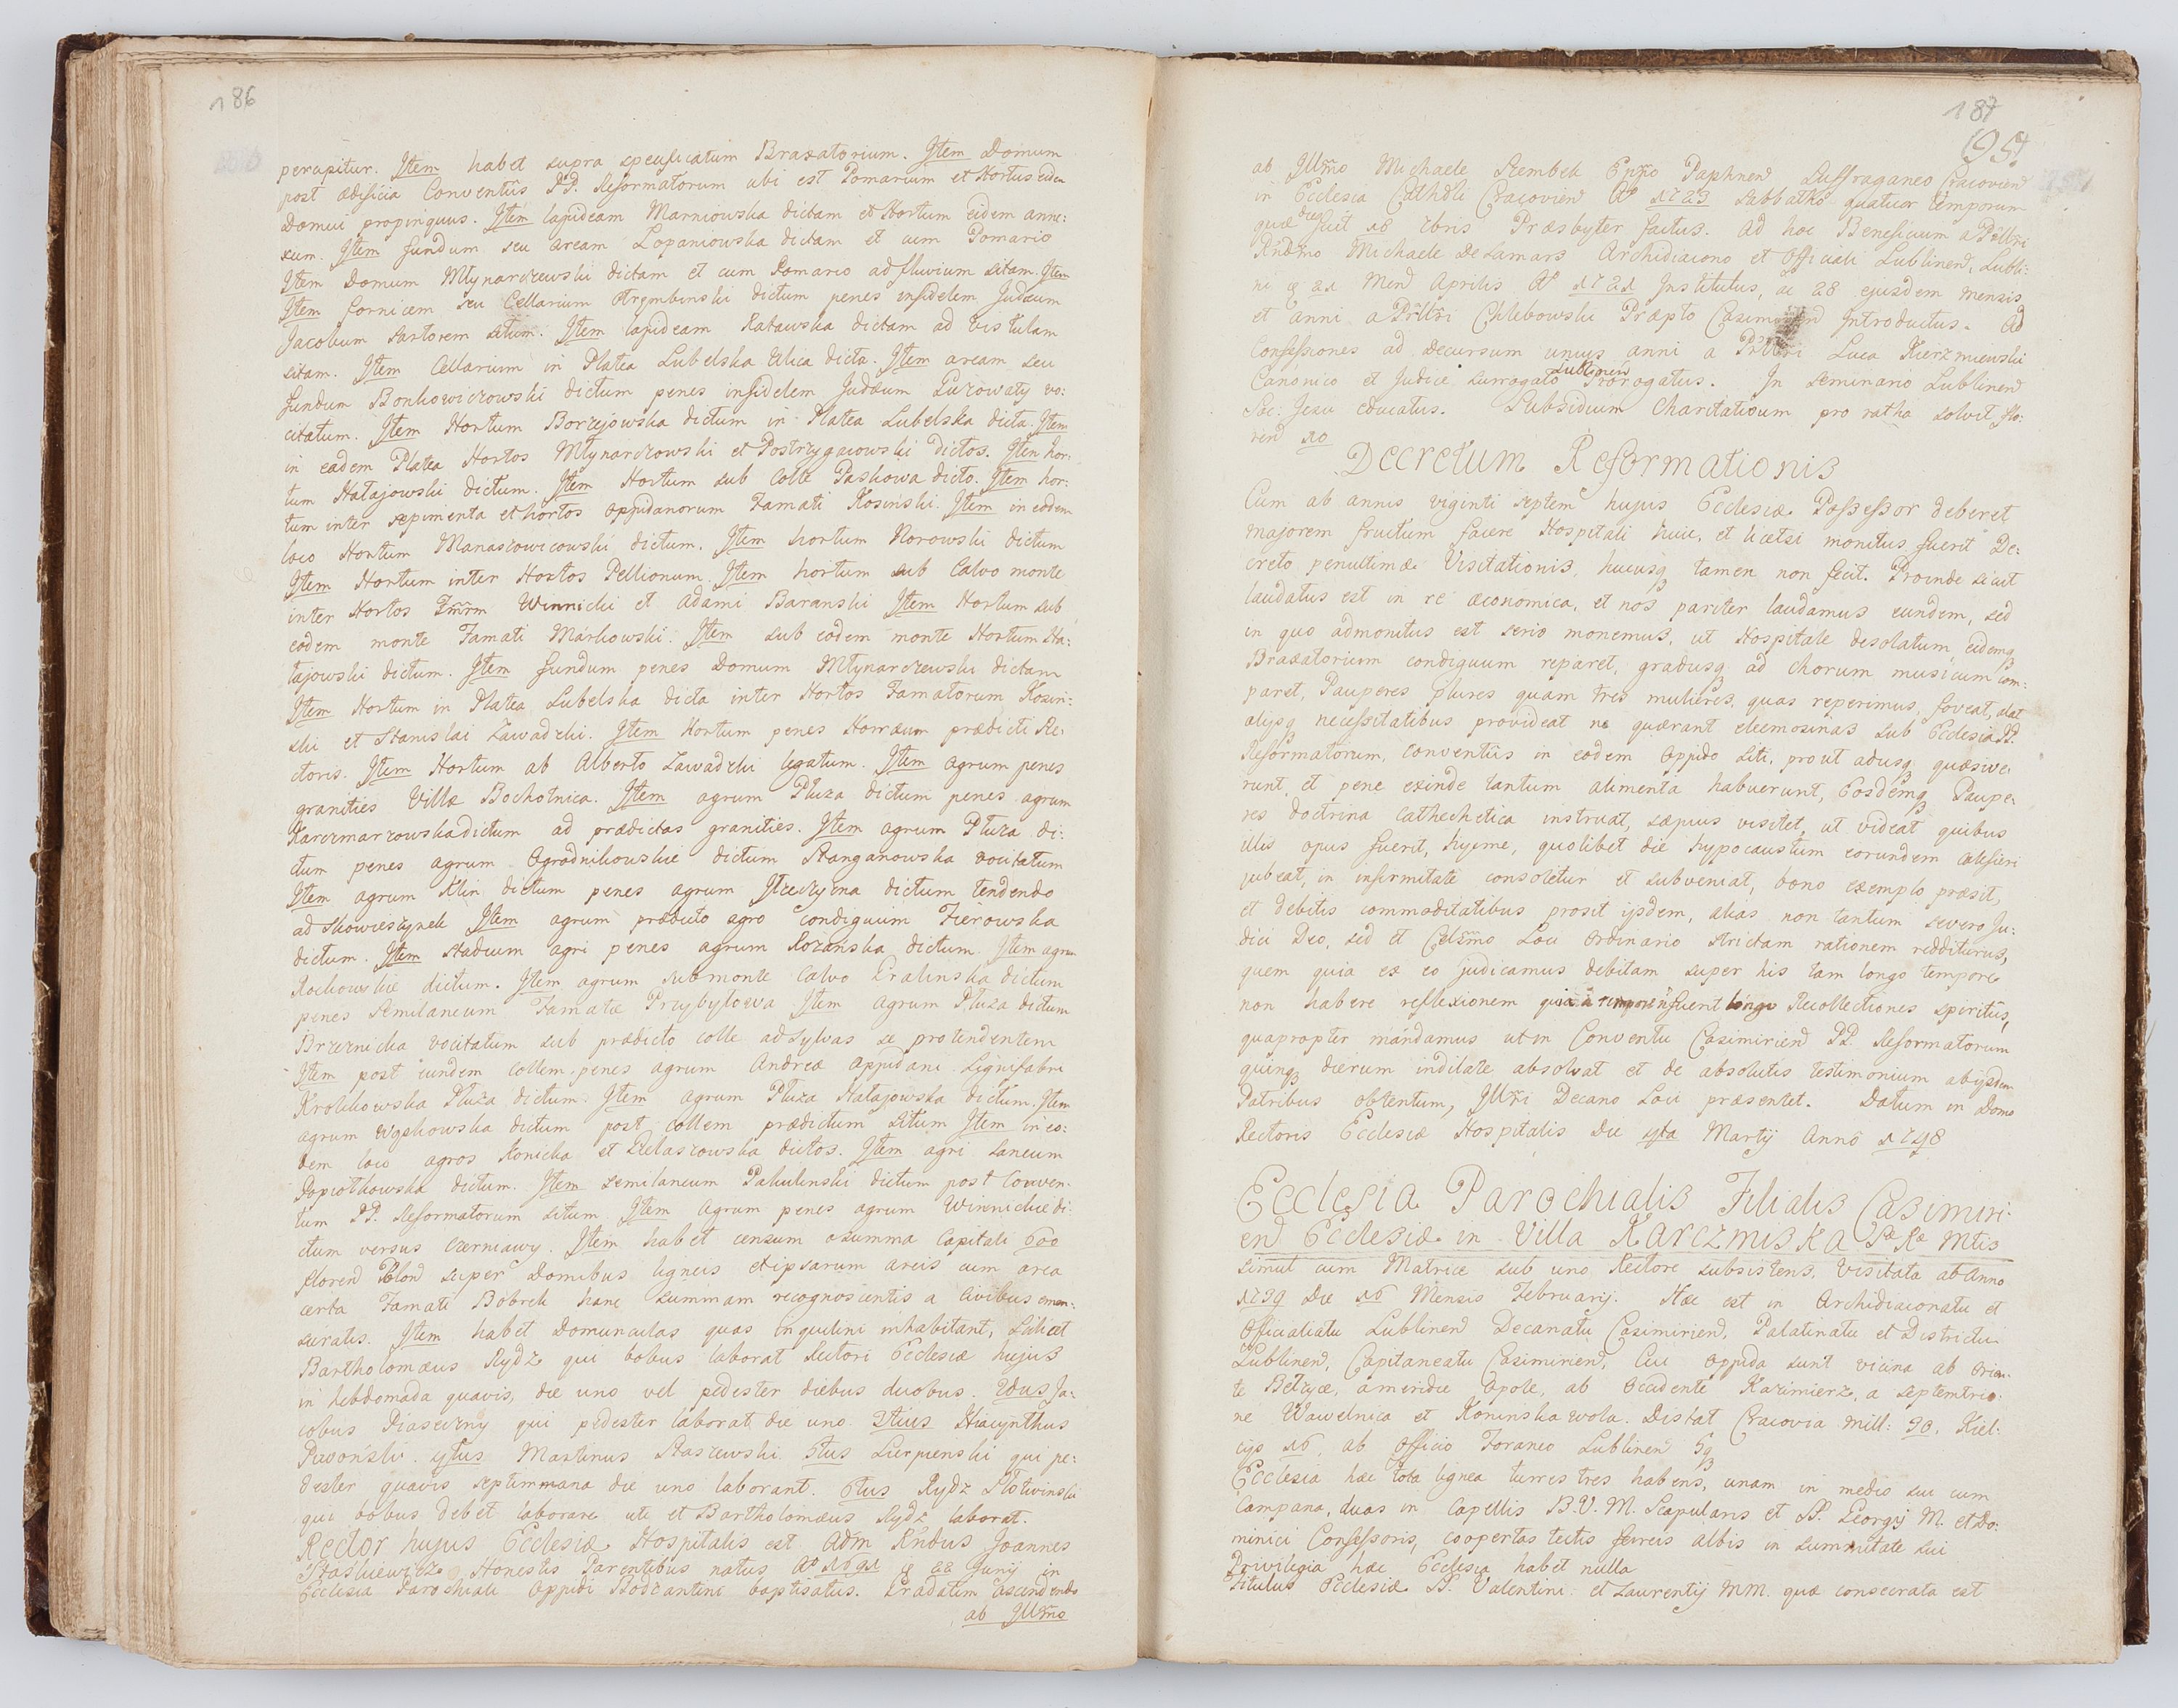 186
percipitur. Item habet supra specificatum Braxatorium. Item Domum
post ædificia Conventûs PP. Reformatorum ubi est Pomarium et Hortus eidem
Domui propinquus. Item lapideam Marniowska dictam et Hortum eidem anne:
xum. Item fundum seu aream Lopaniowska dictam et cum Pomario
Item Domum Młynarczewski dictam et cum Pomario ad fluvium sitam. Item
Item fornicem seu Cellarium dictum penes infidelem Judæum
Jacobum Sartorem situm. Item lapideam Katawska dictam ad Vistulam
sitam. Item Cellarium in Platea Lubelska Ulica dicta. Item aream seu
fundum Bonkowiczowski dictum penes infidelem Judæum Guzowaty vo:
citatum. Item Hortum Borzejowska dictum in Platea Lubelska dicta. Item
in eadem Platea Hortos Młynarczowski et Postrzygaiowski dictos. Item hor:
tum Hatajowski dictum. Item Hortum sub Colle Paskowa dicto. Item hor:
tum inter sepimenta et hortos oppidanorum Famati Kosinski. Item in eodem
loco Hortum Manaszowicowski dictum. Item hortum Norowski dictum
Item Hortum inter Hortos Pellionum. Item hortum sub Calvo monte
inter Hortos Fmrm Winnicki et Adami Baranski Item Hortum sub
eodem monte Famati Markowski. Item sub eodem monte Hortum Ha:
tajowski dictum. Item fundum penes Domum Młynarczewski dictam
Item Hortum in Platea Lubelska dicta inter Hortos Famatorum Kosin:
ski et Stanislai Zawadzki. Item Hortum penes Horræum prædicti Re:
ctoris. Item Hortum ab Alberto Zawadzki legatum. Item agrum penes
granities Villæ Bochotnica. Item agrum Płuza dictum penes agrum
Karczmarzowska dictum ad prædictas granities. Item agrum Płuza di:
ctum penes agrum Ogrodnikowskie dictum Stanganowska vocitatum
Item agrum Klin dictum penes agrum dictum tendendo
ad Skowieszynek Item agrum prædicto agro condiguum Fierowska
dictum. Item stadium agri penes agrum Rozanska dictum. Item agrum
Rochowskie dictum. Item agrum sub monte Calvo Gralinska dictum
penes Semilaneum Famatæ Przybyłowa Item agrum Płuza dictum
Brzeznicka vocitatum sub prædicto colle ad Sylvas se protendentem
Item post eundem collem penes agrum Andreæ oppidani Lignifabri
Krolikowska Płuza dictum. Item agrum Płuza Hatajowska dictum. Item
agrum Wąskowska dictum post collem prædictum situm Item in eo:
dem loco agros Konicka et Dulaszowska dictos. Item agri laneum
Popiołkowska dictum. Item semilaneum Pakulinski dictum post Conven:
tum PP. Reformatorum situm Item Agrum penes agrum Winnickie di:
ctum versus Czerniawy. Item habet censum a summa Capitali 600
floren Polon super Domibus ligneis et ipsarum areis cum area
certa Famati Bobrek hanc summam recognoscentis a Civibus emen:
suratis. Item habet Domunculas quas inquilini inhabitant, Scilicet
Bartholomæus Rydz qui bobus laborat Rectori Ecclesiæ hujus
in hebdomada quavis, die uno vel pedester diebus duobus. 2dus Ja:
cobus Piaseczny qui pedester laborat die uno. 3tius Hiacynthus
Pwoński. 4tus Martinus Staszewski 5tus Sierpienski qui pe:
dester quavis septimmana die uno laborant. 6tus Rydz
qui bobus debet laborare uti et Bartholomæus Rydz laborat.
Rector hujus Ecclesiæ Hospitalis est Adm Rndus Joannes
Staskiewicz Honestis Parentibus natus Aº 1691 22 Junij in
Ecclesia Parochiali Oppidi Bodzantini baptisatus. Gradatim ascendendo
ab Illmo
187
195
ab Illmo Michaele Szembek Eppo Paphnen Suffraganeo Cracovien
in Ecclesia Cathdli Cracovien Aº 1723 Sabbatho quatuor temporum
quæ dies fuit 18 xbris Præsbyter factus. Ad hoc Beneficium a Prllri
Rndmo Michaele De Lamars Archidiacono et Officiali Lublinen, Lubli:
ni 21 Men Aprilis Aº 1721 Institutus, ac 28 ejusdem mensis
et anni a Prllri Chlebowski Præpto Casimirien Introductus. Ad
Confessiones ad decursum unius anni a Prllri Luca Kierzniewski
Canonico et Judice surrogato Lublinen Prorogatus. In Seminario Lublinen
Soc: Jesu educatus. Subsidium Charitativum pro ratha solvit flo:
ren 10
Decretum Reformationis
Cum ab annis viginti septem hujus Ecclesiæ Possessor deberet
majorem fructum facere Hospitali huic, et licetsi monitus fuerit De:
creto penultimæ Visitationis, hucusq tamen non fecit. Proinde sicut
laudatus est in re æconomica, et nos pariter laudamus eundem, sed
in quo admonitus est serio monemus, ut Hospitale desolatum, eidemq
Braxatorium condiguum reparet, gradusq ad chorum musicum com:
paret, Pauperes plures quam tres mulieres, quas reperimus, foveat, alat
alijsq necessitatibus provideat ne quærant eleemosinas sub Ecclesia PP.
Reformatorum, Conventûs in eodem Oppido siti, prout adusq quæsive:
runt, et pene exinde tantum alimenta habuerunt, Eosdemq Paupe:
res doctrina Cathechetica instruat, sæpius visitet, ut videat quibus
illis opus fuerit, hyeme, quolibet die hypocaustum eorundem calefieri
jubeat, in infirmitate consoletur et subveniat, bono exemplo præsit,
et debitis commoditatibus prosit ijsdem, alias non tantum severo Ju:
dici Deo, sed et Celsmo Loci Ordinario strictam rationem redditurus,
quem quia ex eo judicamus debitam super his tam longo tempore
non habere reflexionem quia fuerit longe Recollectiones spiritûs,
quapropter mandamus ut in Conventu Casimirien PP. Reformatorum
quinq dierum indilate absolvat et de absolutis testimonium ab ijsdem
Patribus obtentum, Illri Decano Loci præsentet. Datum in Domo
Rectoris Ecclesiæ Hospitalis Die 4ta Martij Anno 1748
Ecclesia Parochialis Filialis Casimiri:
en Ecclesiæ in Villa Karczmiska Sæ Ræ Mtis
simul cum Matrice sub uno Rectore subsistens, Visitata ab Anno
1739 Die 16 Mensis Februarij. Hæc est in Archidiaconatu et
Officialatu Lublinen Decanatu Casimirien, Palatinatu et Districtu
Lublinen, Capitaneatu Casimirien, Cui oppida sunt vicina ab Orien:
te Bełzyce, a meridie Opole, ab Occidente Kazimierz, a septemtrio:
ne Wawelnica et Koninska wola. Distat Cracovia mill: 30. Kiel:
cijs 16, ab Officio Foraneo Lublinen 5q
Ecclesia hæc tota lignea turres tres habens, unam in medio sui cum
Campana, duas in Capellis B.V.M. Scapularis et SS. Georgij M. et Do:
minici Confessoris, coopertas tectis ferreis albis in summitate sui
Privilegia hæc Ecclesia habet nulla
Titulus Ecclesiæ SS. Valentini et Laurentij MM. quæ consecrata est